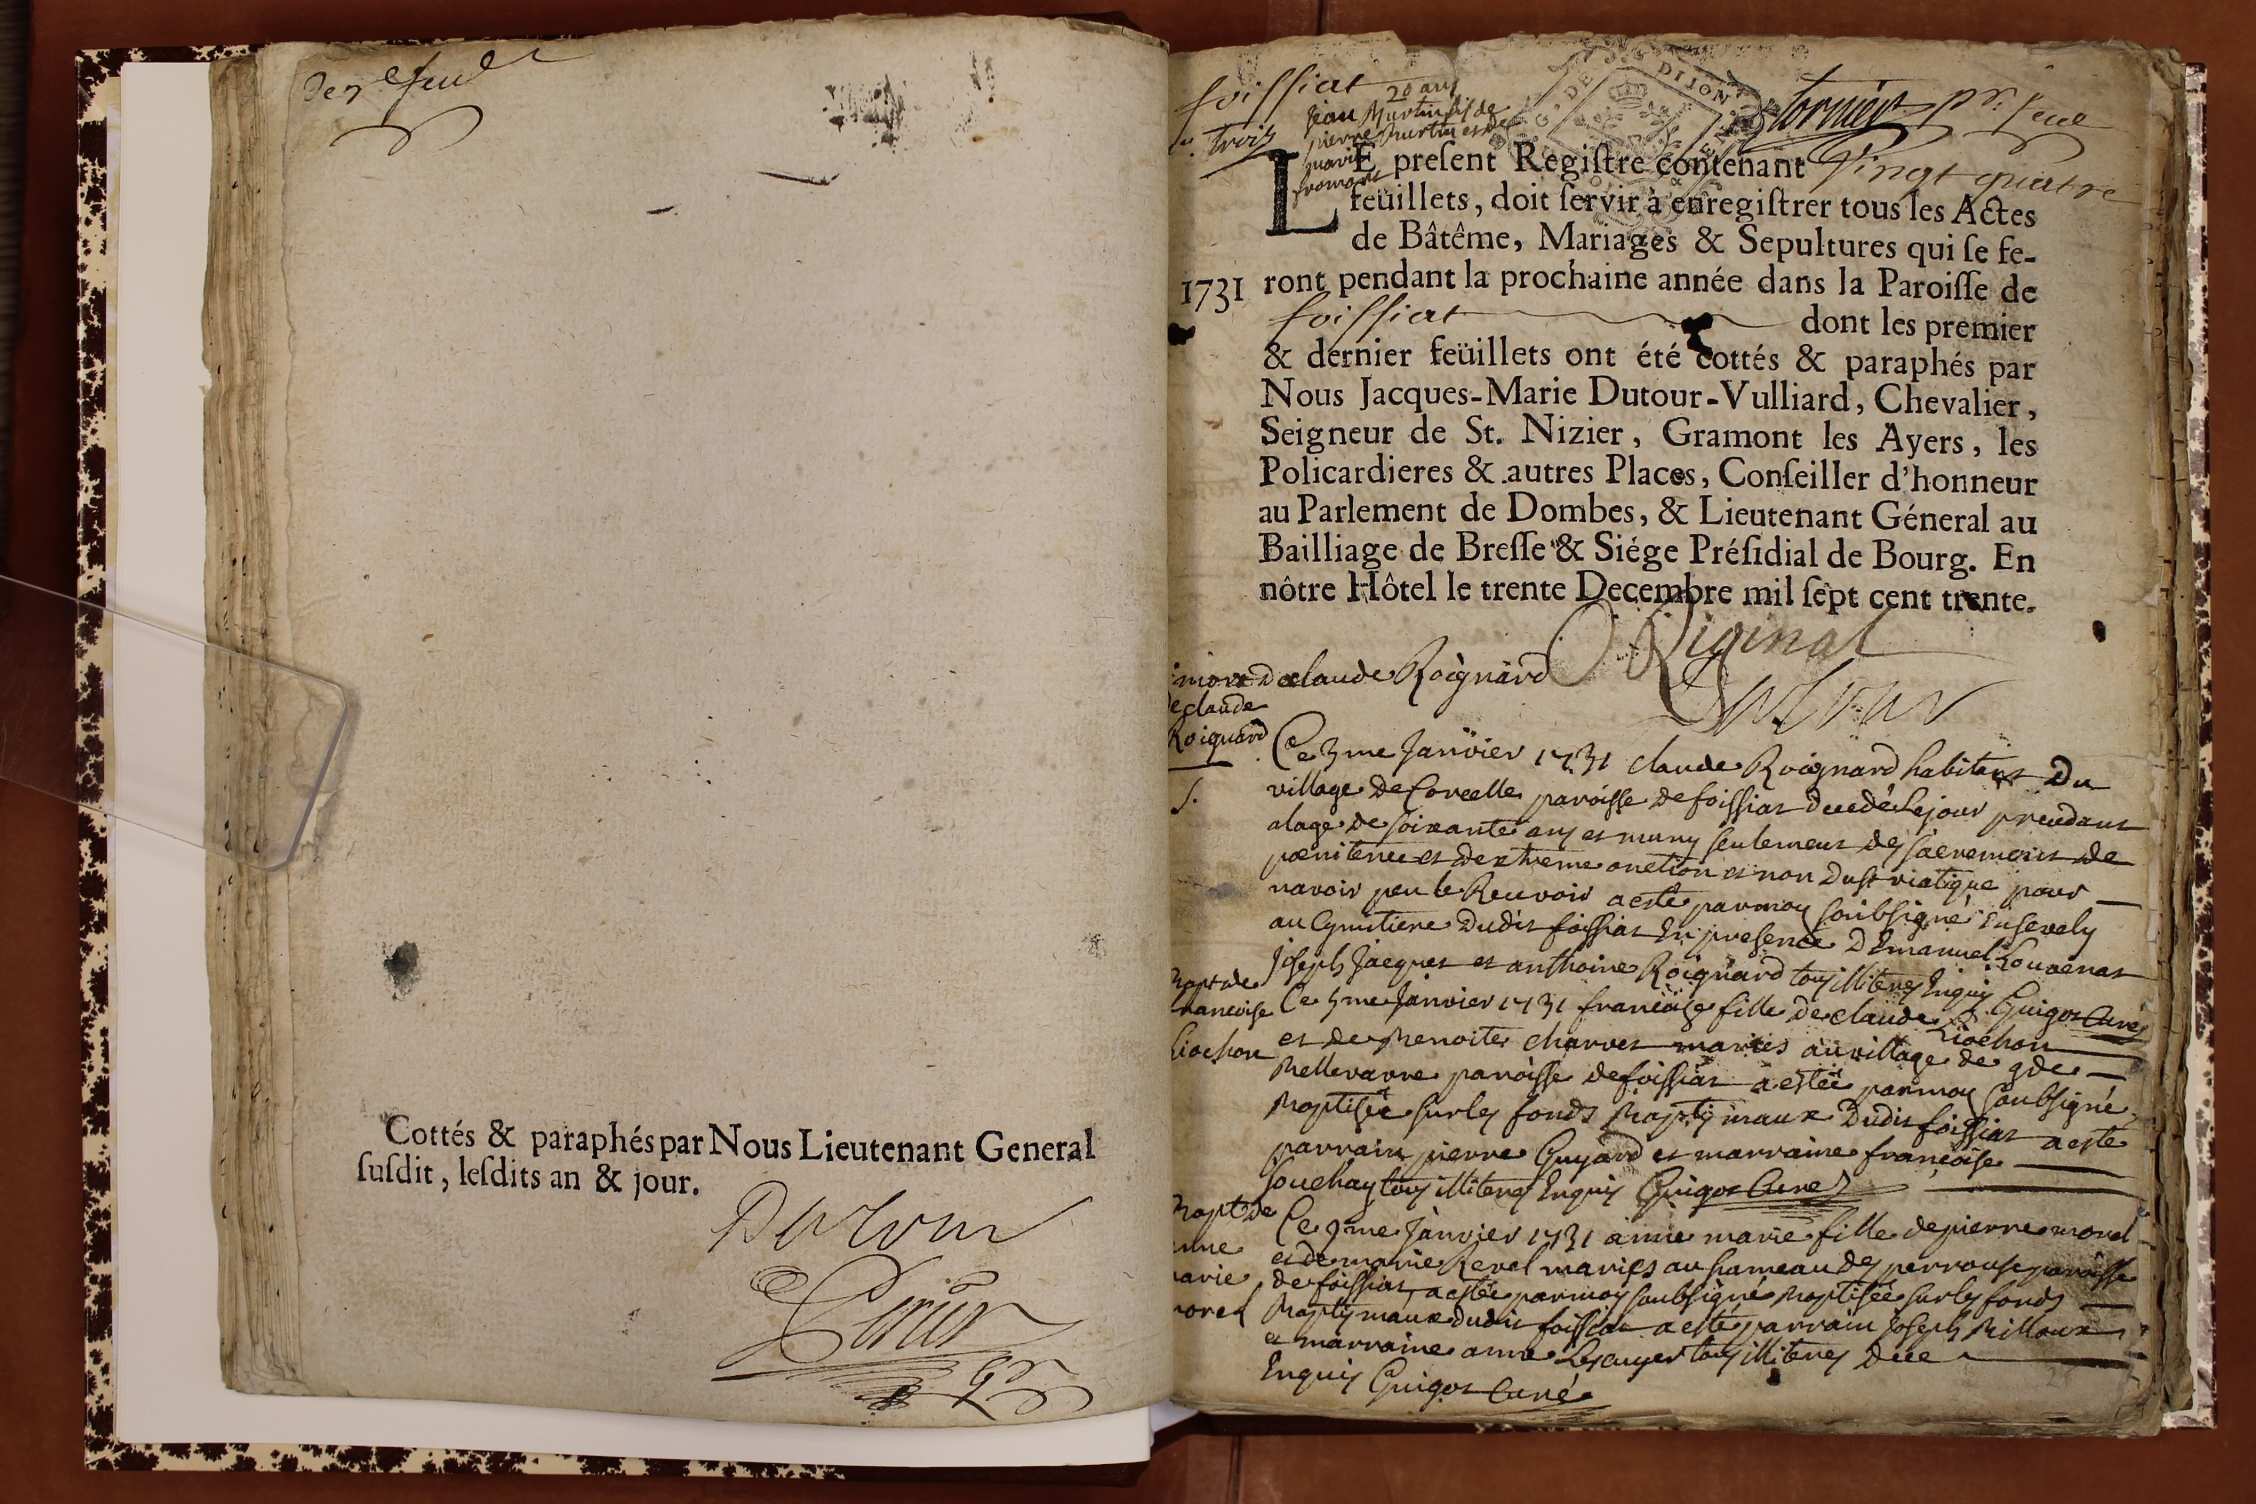 Der.^e feuil
Cottés & paraphés par Nous Lieutenant General
ſuſdit, leſdits an & jour.
Dutour
foissiat
trois
20 ans
Jean Martin fils de
pierre Martin et de
marie
fromont
DE DIJON
pr. feuil
LE preſent Regiſtre contenant Vingt quatre
feüillets, doit ſervir à enregiſtrer tous les Actes
de Bâtême, Mariages & Sepultures qui ſe fe-
1731 ront pendant la prochaine année dans la Paroiſſe de
foissiat dont les premier
& dernier feüillets ont été cottés & paraphés par
Nous Jacques-Marie Dutour-Vulliard, Chevalier,
Seigneur de St. Nizier, Gramont les Ayers, les
Policardieres & autres Places, Conſeiller d'honneur
au Parlement de Dombes, & Lieutenant Géneral au
Bailliage de Breſſe & Siége Préſidial de Bourg. En
nôtre Hôtel le trente Decembre mil ſept cent trente.
Original
Dutour
mort De claude Roignard
de claude
Roignard
S.
Ce 3me Janvier 1731 claude Roignard habitant Du
village De Corcelle paroisse de foissiat decedé le jour precedant
alage de soixante ans et muny seulement des sacremens de
pœnitence et dextreme onction et non Du st viatique pour
navoir peu le Recevoir a esté par moy soubsigné Ensevely
au Cymitiere Dudit foissiat En presence D Emanuel Louvenat
Joseph Jacquet et anthoine Roignard tous illiteres Enquis Guigot Curé
Bapt de
francoise
Liochon
Ce 5me Janvier 1731 francoise fille De claude Liochon
et de Benoite charvet mariés au village de
Bellevavre paroisse de foissiat a estée par moy soubsigné
Baptisée sur les fonds Baptismaux Dudit foissiat a esté
parrain pierre Guyard et marraine francoise
souchay tous illiteres Enquis Guigot Curé
Bapt de
anne
marie
morel
Ce 9me Janvier 1731 anne marie fille de pierre morel
et de marie Revel mariés au hameau des perrouse paroisse
de foissiat, a estée par moy soubsigné Baptisée sur les fonds
Baptismaux dudit foissiat a esté parrain Joseph Billoux
et marraine anne tous illiteres De ce
Enquis Guigot Curé